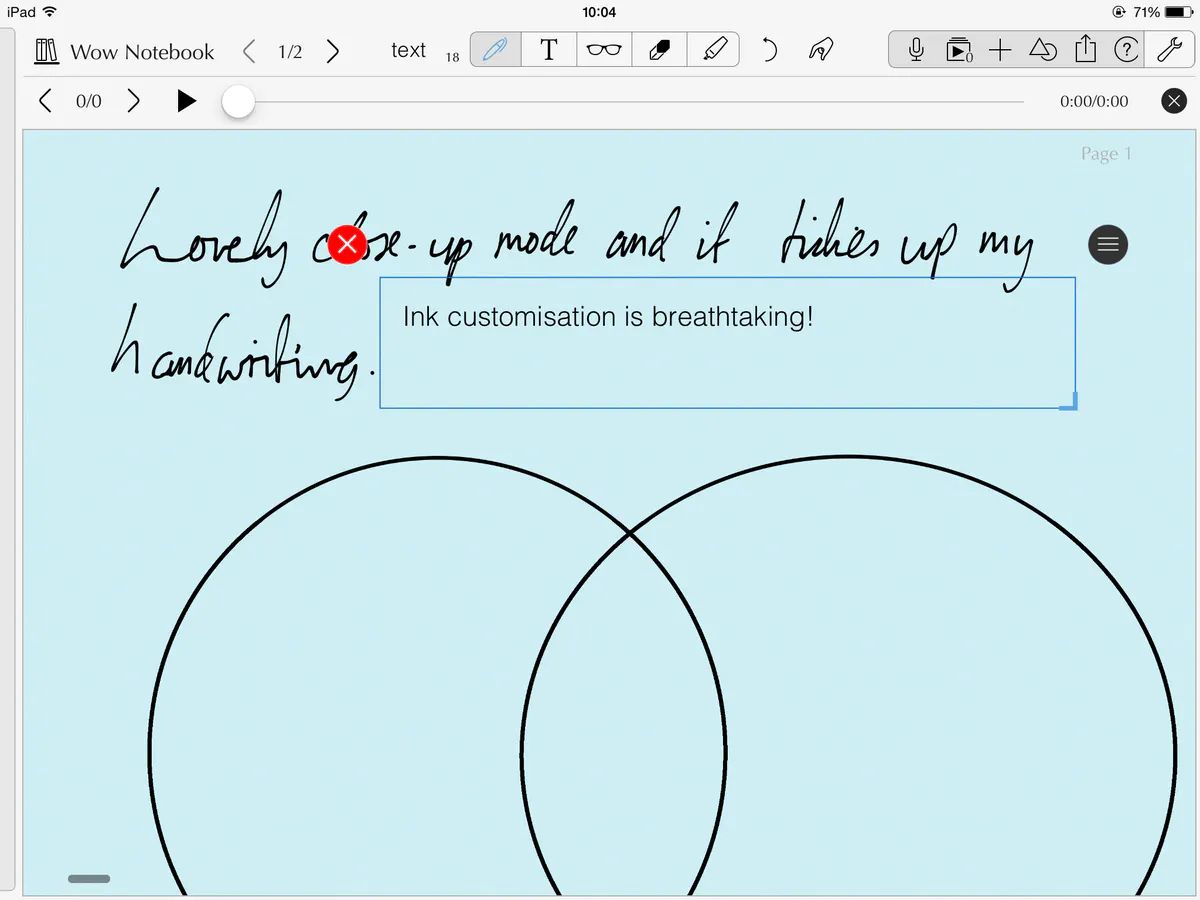 iPad 10:04 71%
Wow Notebook 1/2 text 18 T 0 ?
0/0 0:00/0:00
Page 1
Lovely close-up mode and it tidies up my
handwriting.
Ink customisation is breathtaking!